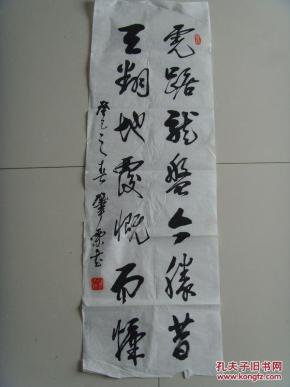 虎踞龙盘今胜昔
天翻地覆慨而慷
癸巳之春
孔夫子旧书网